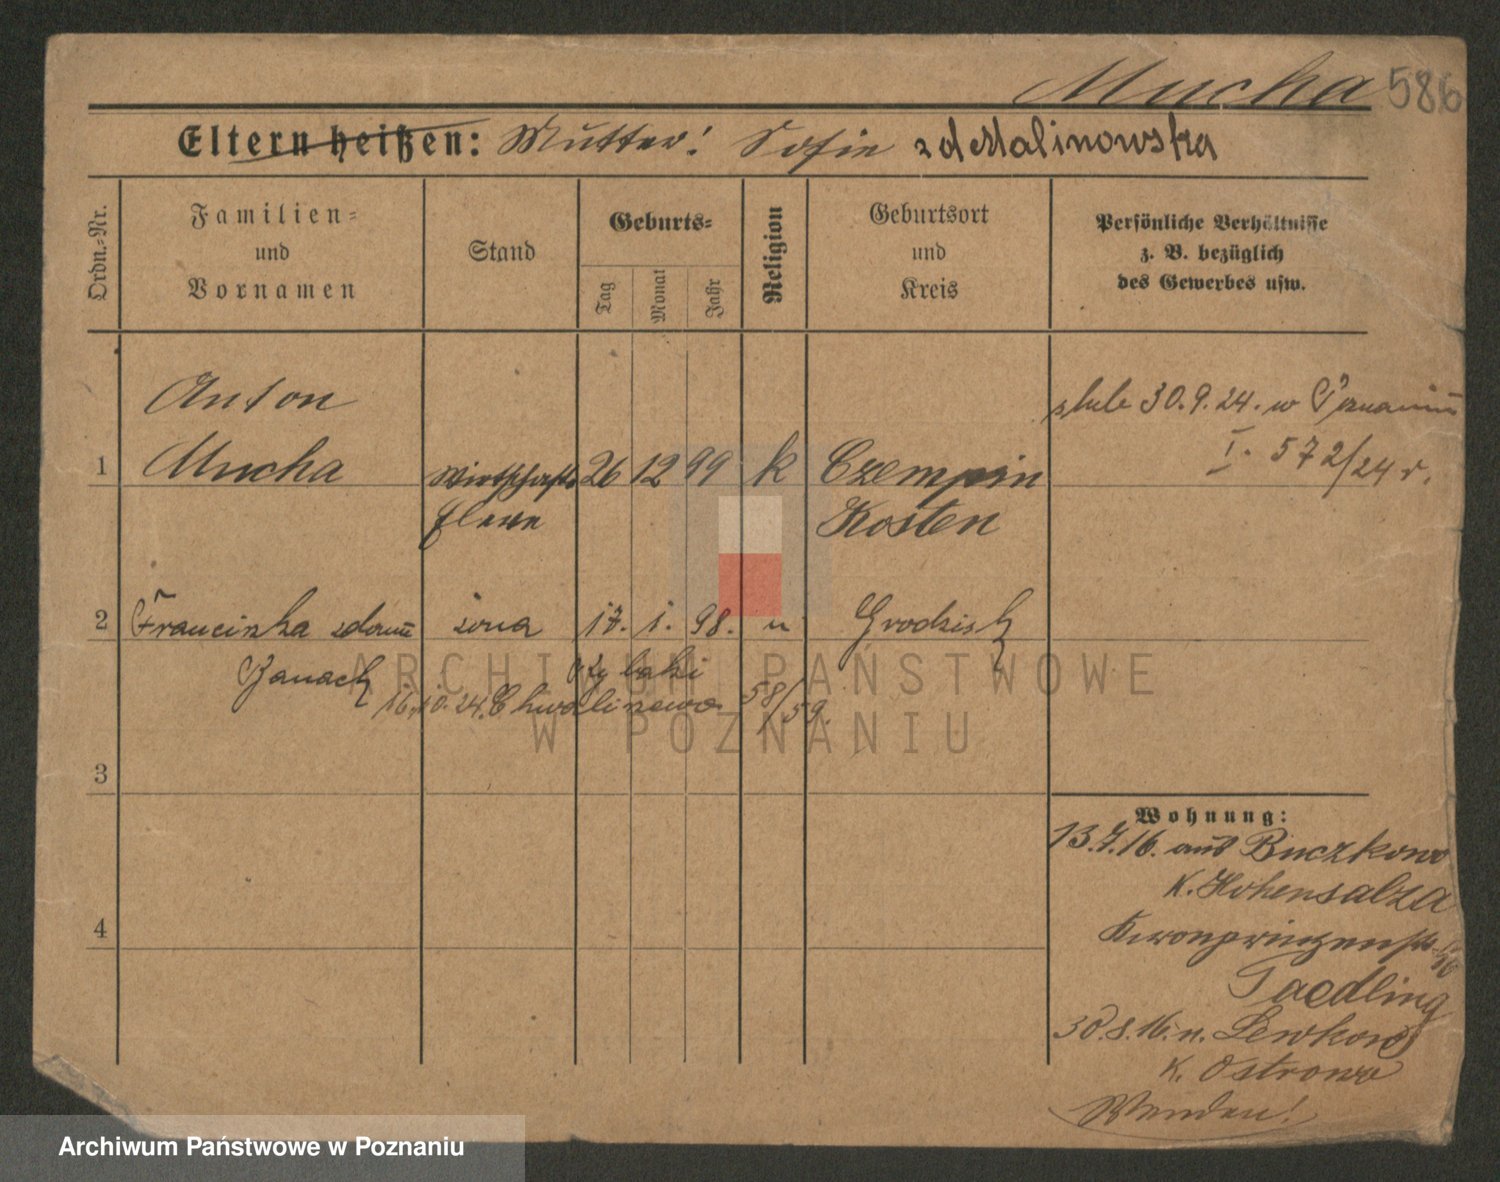 Mucha 586
Eltern heißen: Mutter! Sofie zd Malinowska
Ordn.-Nr.
Familien-
und
Vornamen
Stand
Geburts-
Tag
Monat
Jahr
Religion
Geburtsort
und
Kreis
Persönliche Verhältnisse
z. B. bezüglich
des Gewerbes usw.
Anton
1 Mucha Wirtschafts 26 12 99 k Czempin
Eleve Kosten
ślub 30.9.24. w Poznaniu
I. 572/24 r.
2 Franciszka zdom żona 17. 1. 98. " Grodzisk
Janach
16.10.24. Chwaliszewo 58/59.
3
4
Wohnung:
13.7.16. aus Buczkowo
K. Hohensalza
Kronprinzenstr.
Taedling
30.8.16. n. Lewkow
K. Ostrowo
Wenden!
ARCHIWUM PAŃSTWOWE
W POZNANIU
Archiwum Państwowe w Poznaniu